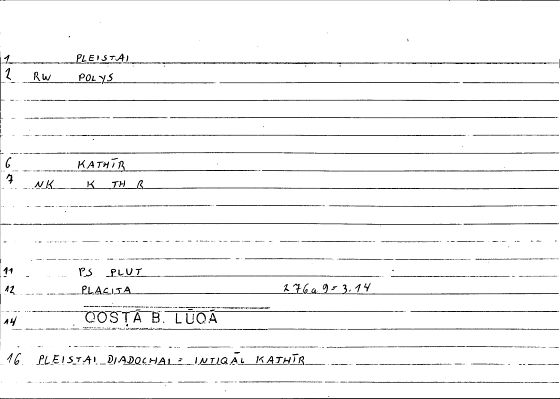 1 PLEISTAI
2 RW POLYS
6 KATHĪR
7 NK K TH R
11 PS PLUT
12 PLACITA 276a9=3.14
14 QOSṬĀ B. LŪQĀ
16 PLEISTAI DIADOCHAI = INTIQĀL KATHĪR